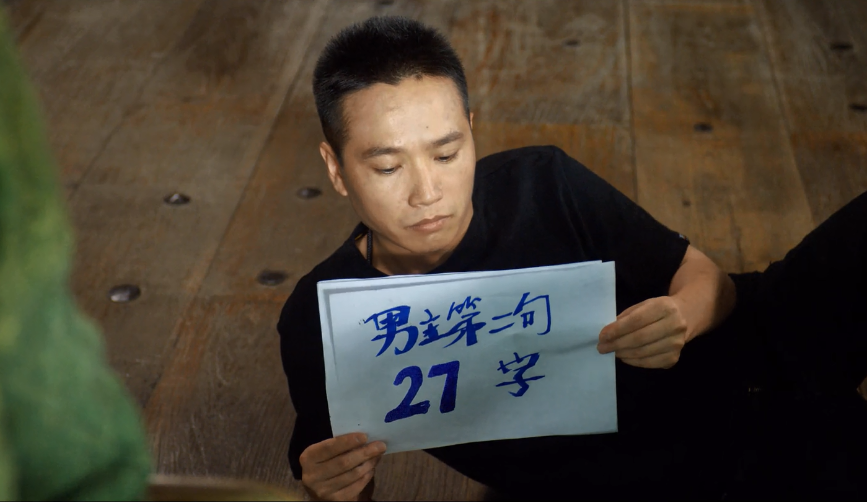 男主第二句
27 字